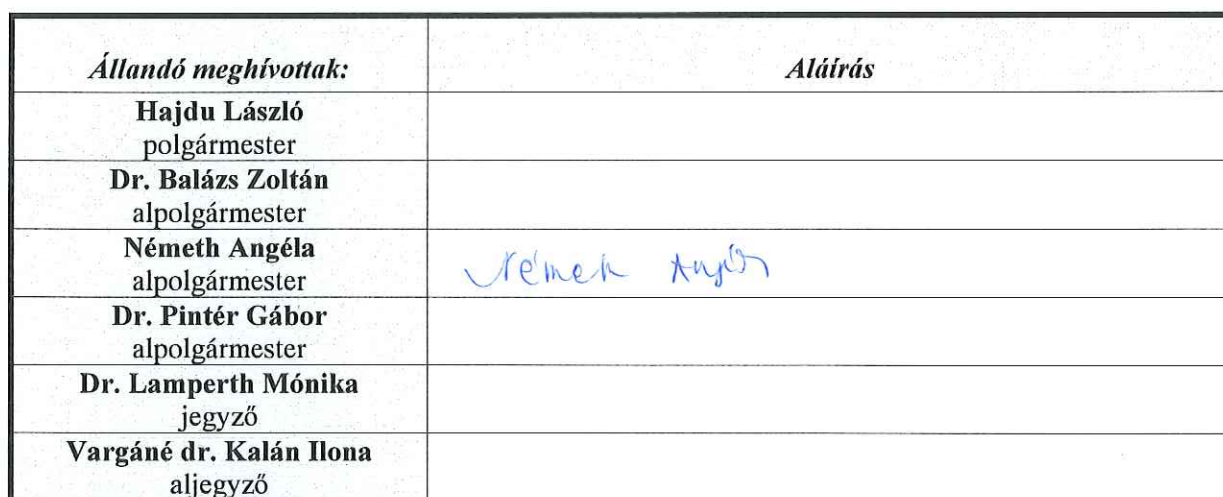 Állandó meghívottak: Aláírás
Hajdu László
polgármester
Dr. Balázs Zoltán
alpolgármester
Németh Angéla
alpolgármester
Németh Angéla
Dr. Pintér Gábor
alpolgármester
Dr. Lamperth Mónika
jegyző
Vargáné dr. Kalán Ilona
aljegyző